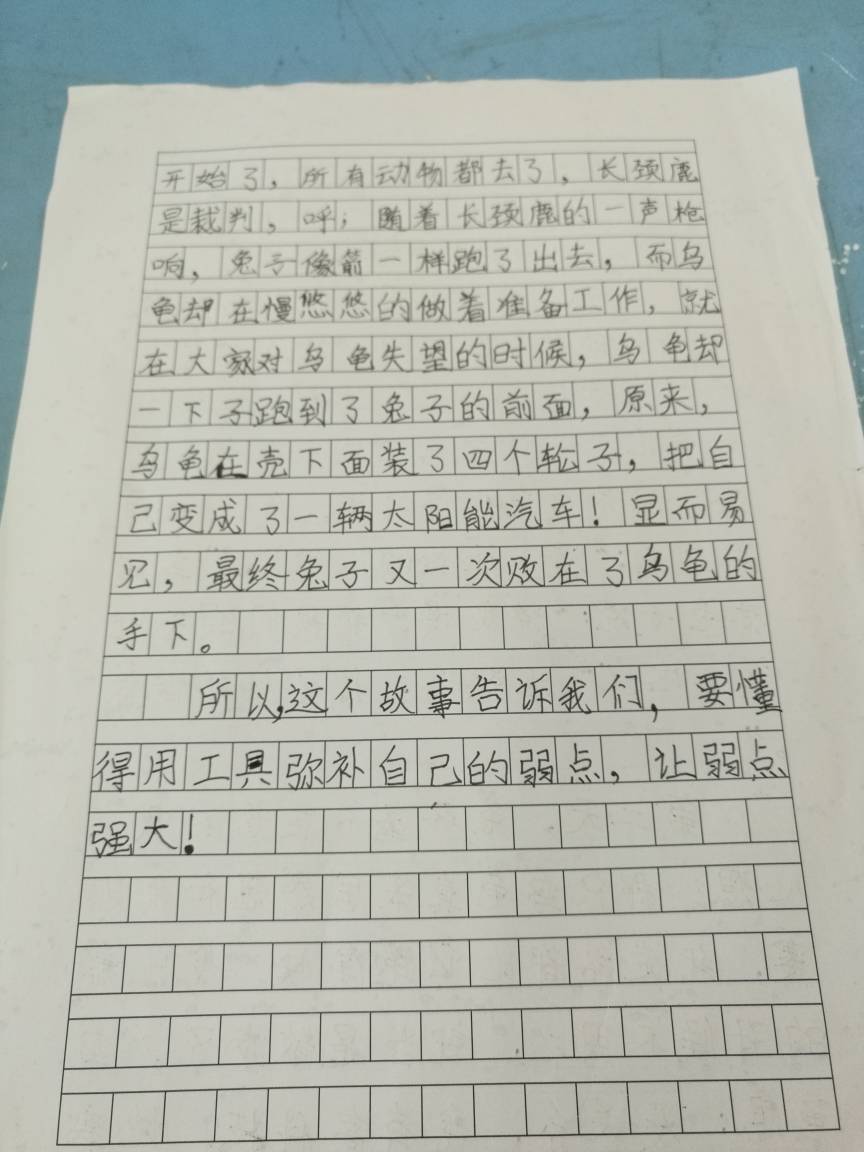 开始了，所有动物都去了，长颈鹿
是裁判，呼；随着长颈鹿的一声枪
响，兔子像箭一样跑了出去，而乌
龟却在慢悠悠的做着准备工作，就
在大家对乌龟失望的时候，乌龟却
一下子跑到了兔子的前面，原来，
乌龟在壳下面装了四个轮子，把自
己变成了一辆太阳能汽车！显而易
见，最终兔子又一次败在了乌龟的
手下。
所以，这个故事告诉我们，要懂
得用工具弥补自己的弱点，让弱点
强大！